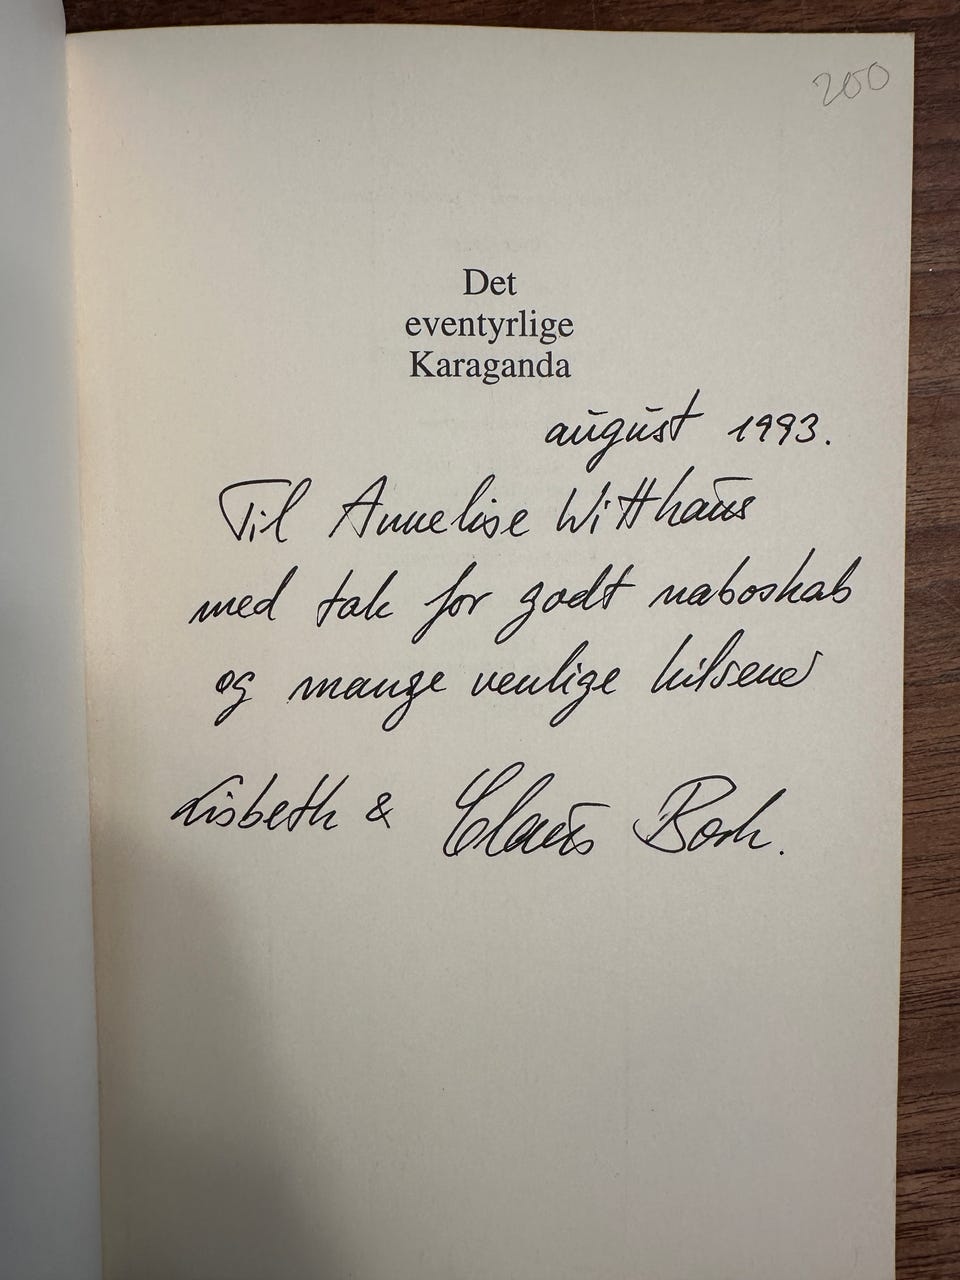 200
Det
eventyrlige
Karaganda
august 1993.
Til Annelise Witthaus
med tak for godt naboskab
og mange venlige hilsener
Lisbeth & Claus